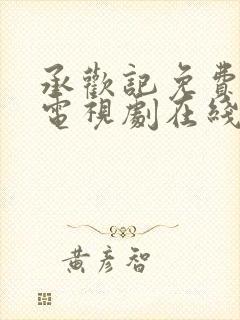 承歡記免費
電視劇在綫
黃彥智